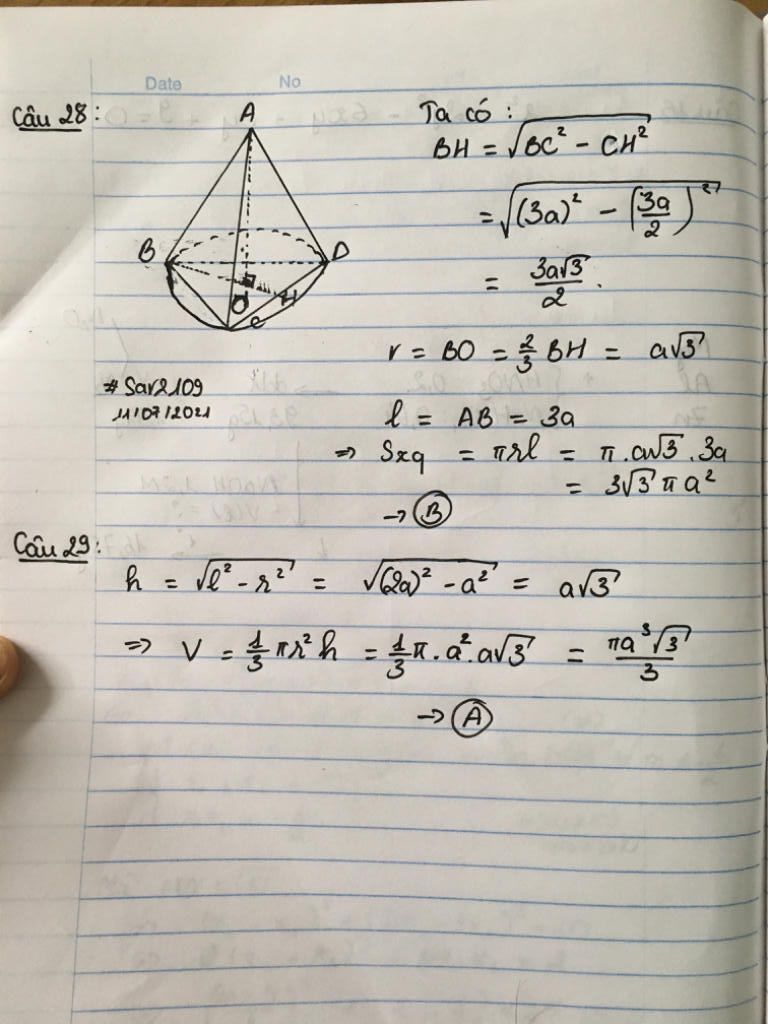 Date No
Câu 28:
A
B
D
O
H
C
Ta có :
BH = √(BC² - CH²)
= √((3a)² - (3a/2)²)
= 3a√3/2.
r = BO = 2/3 BH = a√3
# Sar2109
11/07/2021
l = AB = 3a
=> Sxq = πrl = π.a√3.3a
= 3√3πa²
→ B
Câu 29:
h = √(l² - r²) = √((2a)² - a²) = a√3
=> V = 1/3 πr²h = 1/3 π.a².a√3 = πa³√3/3
→ A